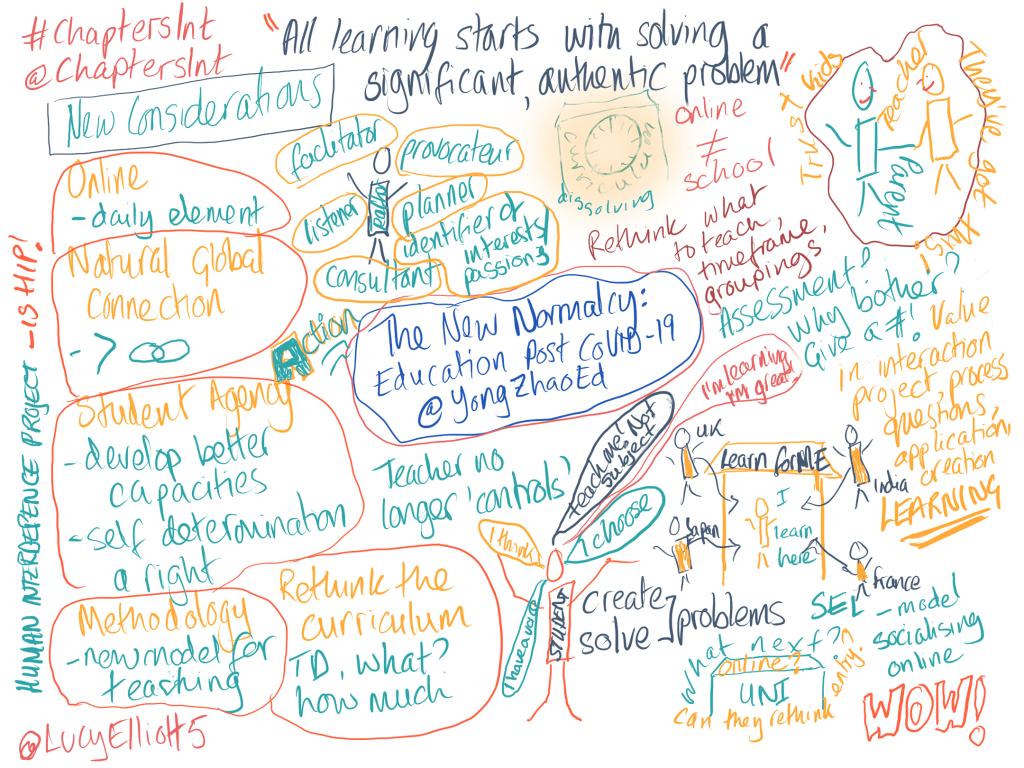 #ChaptersInt
@ChaptersInt
"All learning starts with solving a
significant, authentic problem"
New Considerations
Online
- daily element
Natural Global
Connection
- >
Student Agency
- develop better
capacities
- self determination
a right
Methodology
- new model for
teaching
Rethink the
curriculum
TD, what?
how much
HUMAN INTERDEPENCE PROJECT - IS HIP!
@LucyElliott5
facilitator
provocateur
listener
planner
identifier of
interests/
passions
consultant
Action
The New Normalcy:
Education Post CoVID-19
@YongZhaoEd
curriculum
dissolving
online
≠
school
Rethink what
to teach,
timeframe,
groupings
Trust kids
They've got
this!
Teacher
Parent
Assessment?
Why bother?
Give a #!
Value
in interaction
project, process
questions,
application,
creation
LEARNING
Teacher no
longer 'controls'
I'm learning
I'm great!
Teach me! Not
Subject
I choose
I think
I have a voice
STUDENT
create
solve
problems
UK
India
Japan
France
Learn for ME
I
learn
here
SEL
- model
socialising
online
What next?
online?
UNI
Can they rethink
entry?
WOW!